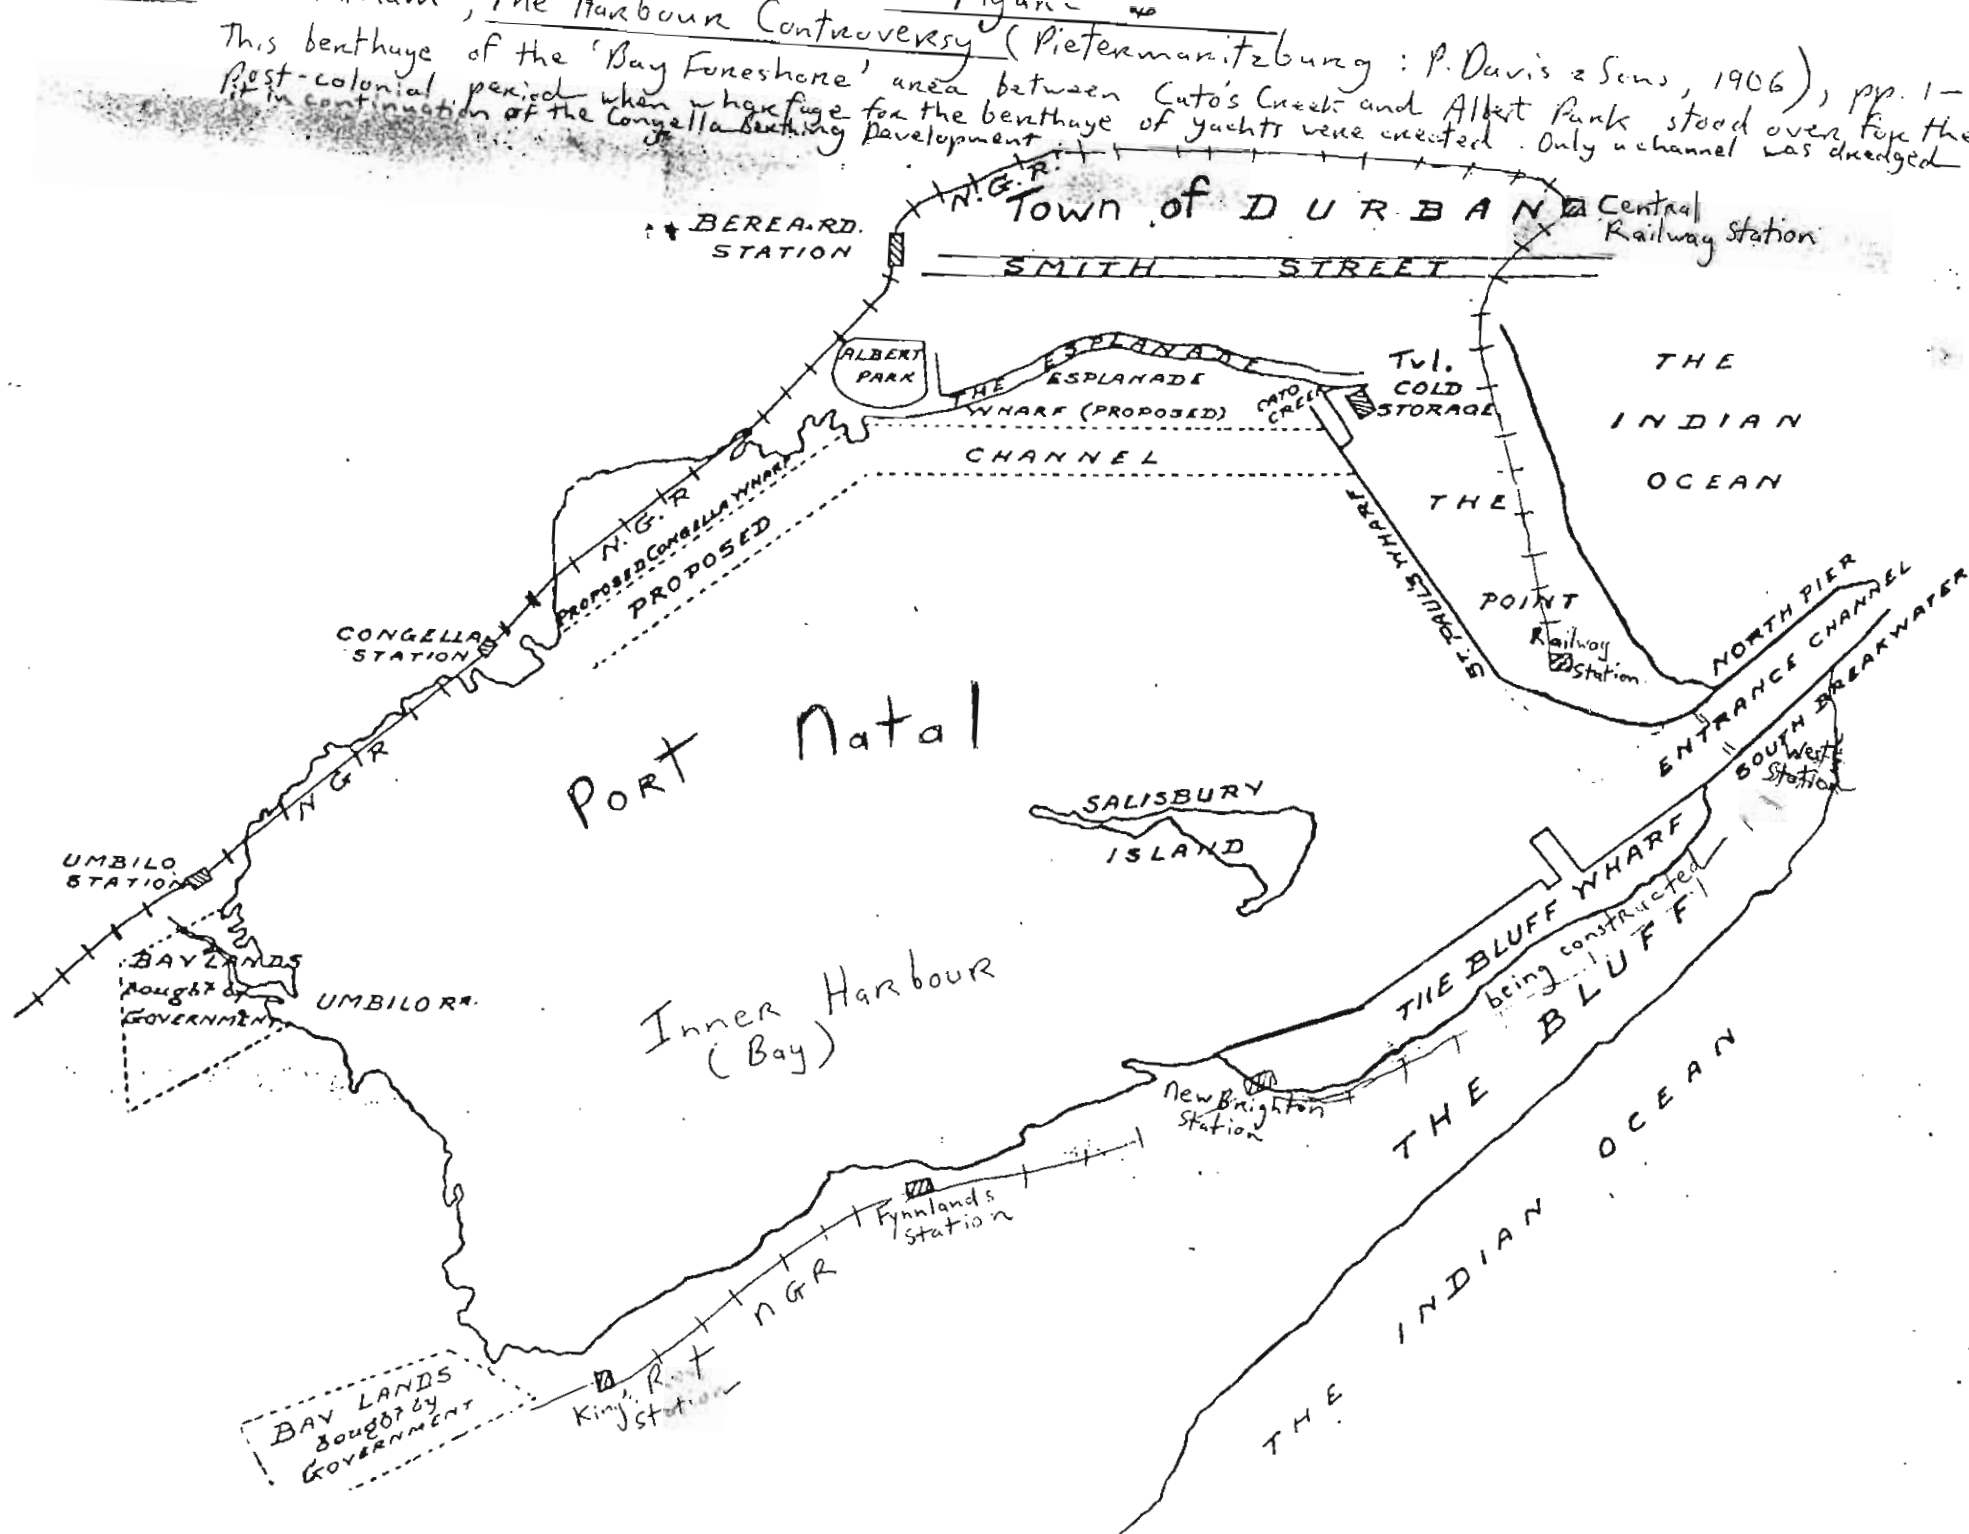 The Harbour Controversy (Pietermaritzburg : P. Davis & Sons, 1906), pp. 1-
This berthage of the 'Bay Foreshore' area between Cato's Creek and Albert Park stood over for the
post-colonial period when wharfage for the berthage of yachts were erected. Only a channel was dredged
in continuation of the Congella Berthing Development
N.G.R.
Town of DURBAN
Central
Railway Station
BEREA.RD.
STATION
SMITH STREET
ALBERT
PARK
THE ESPLANADE
ESPLANADE
WHARF (PROPOSED)
CATO
CREEK
Tvl.
COLD
STORAGE
THE
INDIAN
OCEAN
CHANNEL
PROPOSED
N.G.R
PROPOSED CONGELLA WHARF
ST. PAULS WHARF
THE
POINT
Railway
Station
CONGELLA
STATION
NORTH PIER
ENTRANCE CHANNEL
SOUTH BREAKWATER
West
Station
Port Natal
N G R
SALISBURY
ISLAND
UMBILO
STATION
THE BLUFF WHARF
being constructed
BAY LANDS
Bought by
GOVERNMENT
UMBILO RR.
Inner Harbour
(Bay)
THE BLUFF
New Brighton
Station
Fynnlands
Station
NGR
King's R
Station
THE INDIAN OCEAN
BAY LANDS
Bought by
GOVERNMENT